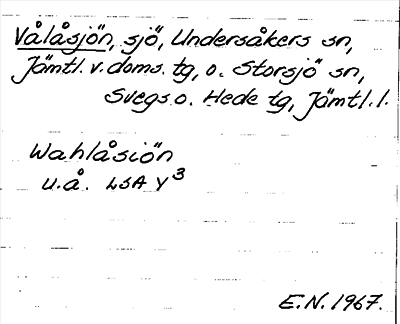 Vålåsjön, sjö, Undersåkers sn,
Jämtl. v. doms. tg, o. Storsjö sn,
Svegs o. Hede tg, Jämtl. l.
Wahlåsiön
u.å. LSA Y3
E.N. 1967.